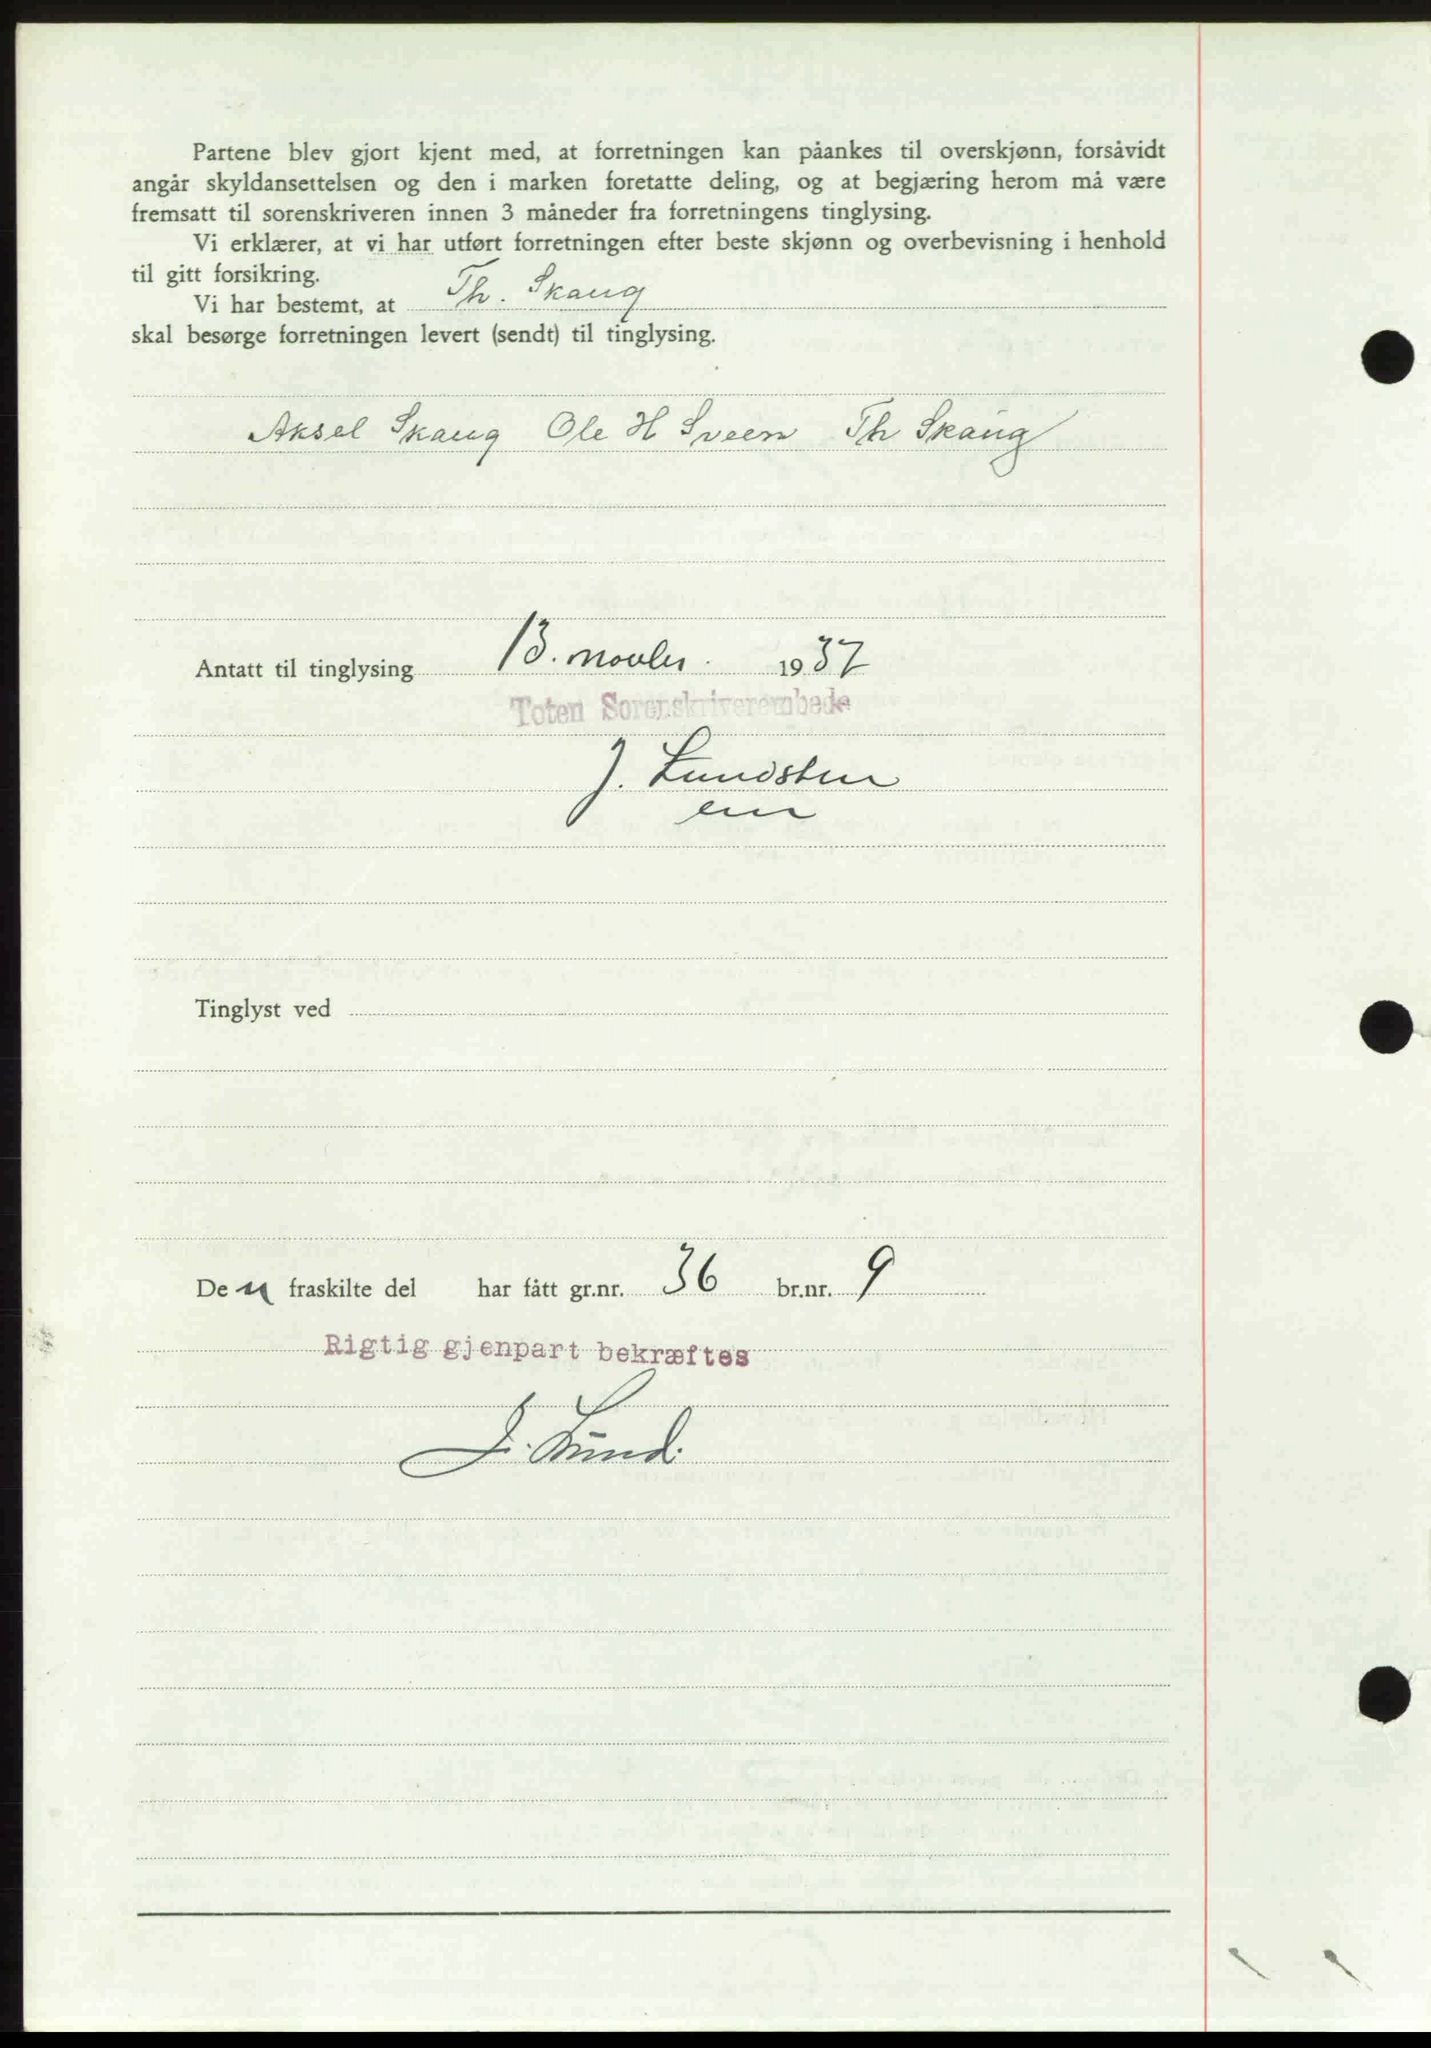 Partene blev gjort kjent med, at forretningen kan påankes til overskjønn, forsåvidt
angår skyldansettelsen og den i marken foretatte deling, og at begjæring herom må være
fremsatt til sorenskriveren innen 3 måneder fra forretningens tinglysing.
Vi erklærer, at vi har utført forretningen efter beste skjønn og overbevisning i henhold
til gitt forsikring.
Vi har bestemt, at Th. Skaug
skal besørge forretningen levert (sendt) til tinglysing.
Aksel Skaug Ole H Sveen Th Skaug
Antatt til tinglysing 13. novbr. 1937
Toten Sorenskriverembede
J. Lundsten
Tinglyst ved
De n fraskilte del har fått gr.nr. 36 br.nr. 9
Rigtig gjenpart bekræftes
J. Lund.